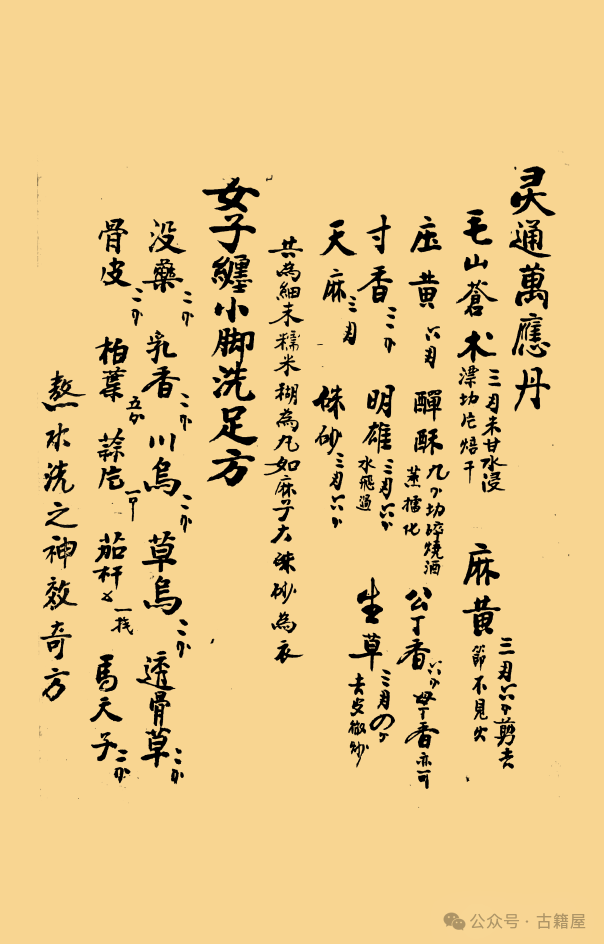 灵通萬應丹
毛山蒼术 三月米甘水浸 切片焙干 麻黄 三月六分剪去 節不見火
黄 六月 酥 九分切碎燒酒 蒸擂化 公丁香 六分 母丁香亦可
寸香 二二分 明雄 三月六分 水飛過 生草 三月 去皮微炒
天麻 三月 硃砂 三月六分
共為細末糯米糊為丸如麻子大硃砂為衣
女子纏小脚洗足方
没藥 二分 乳香 二分 川烏 二分 草烏 二分 透骨草 二分
骨皮 二分 柏葉 五分 蒜片 茄杆 馬天子 二分
熬水洗之神效奇方
公众号·古籍屋